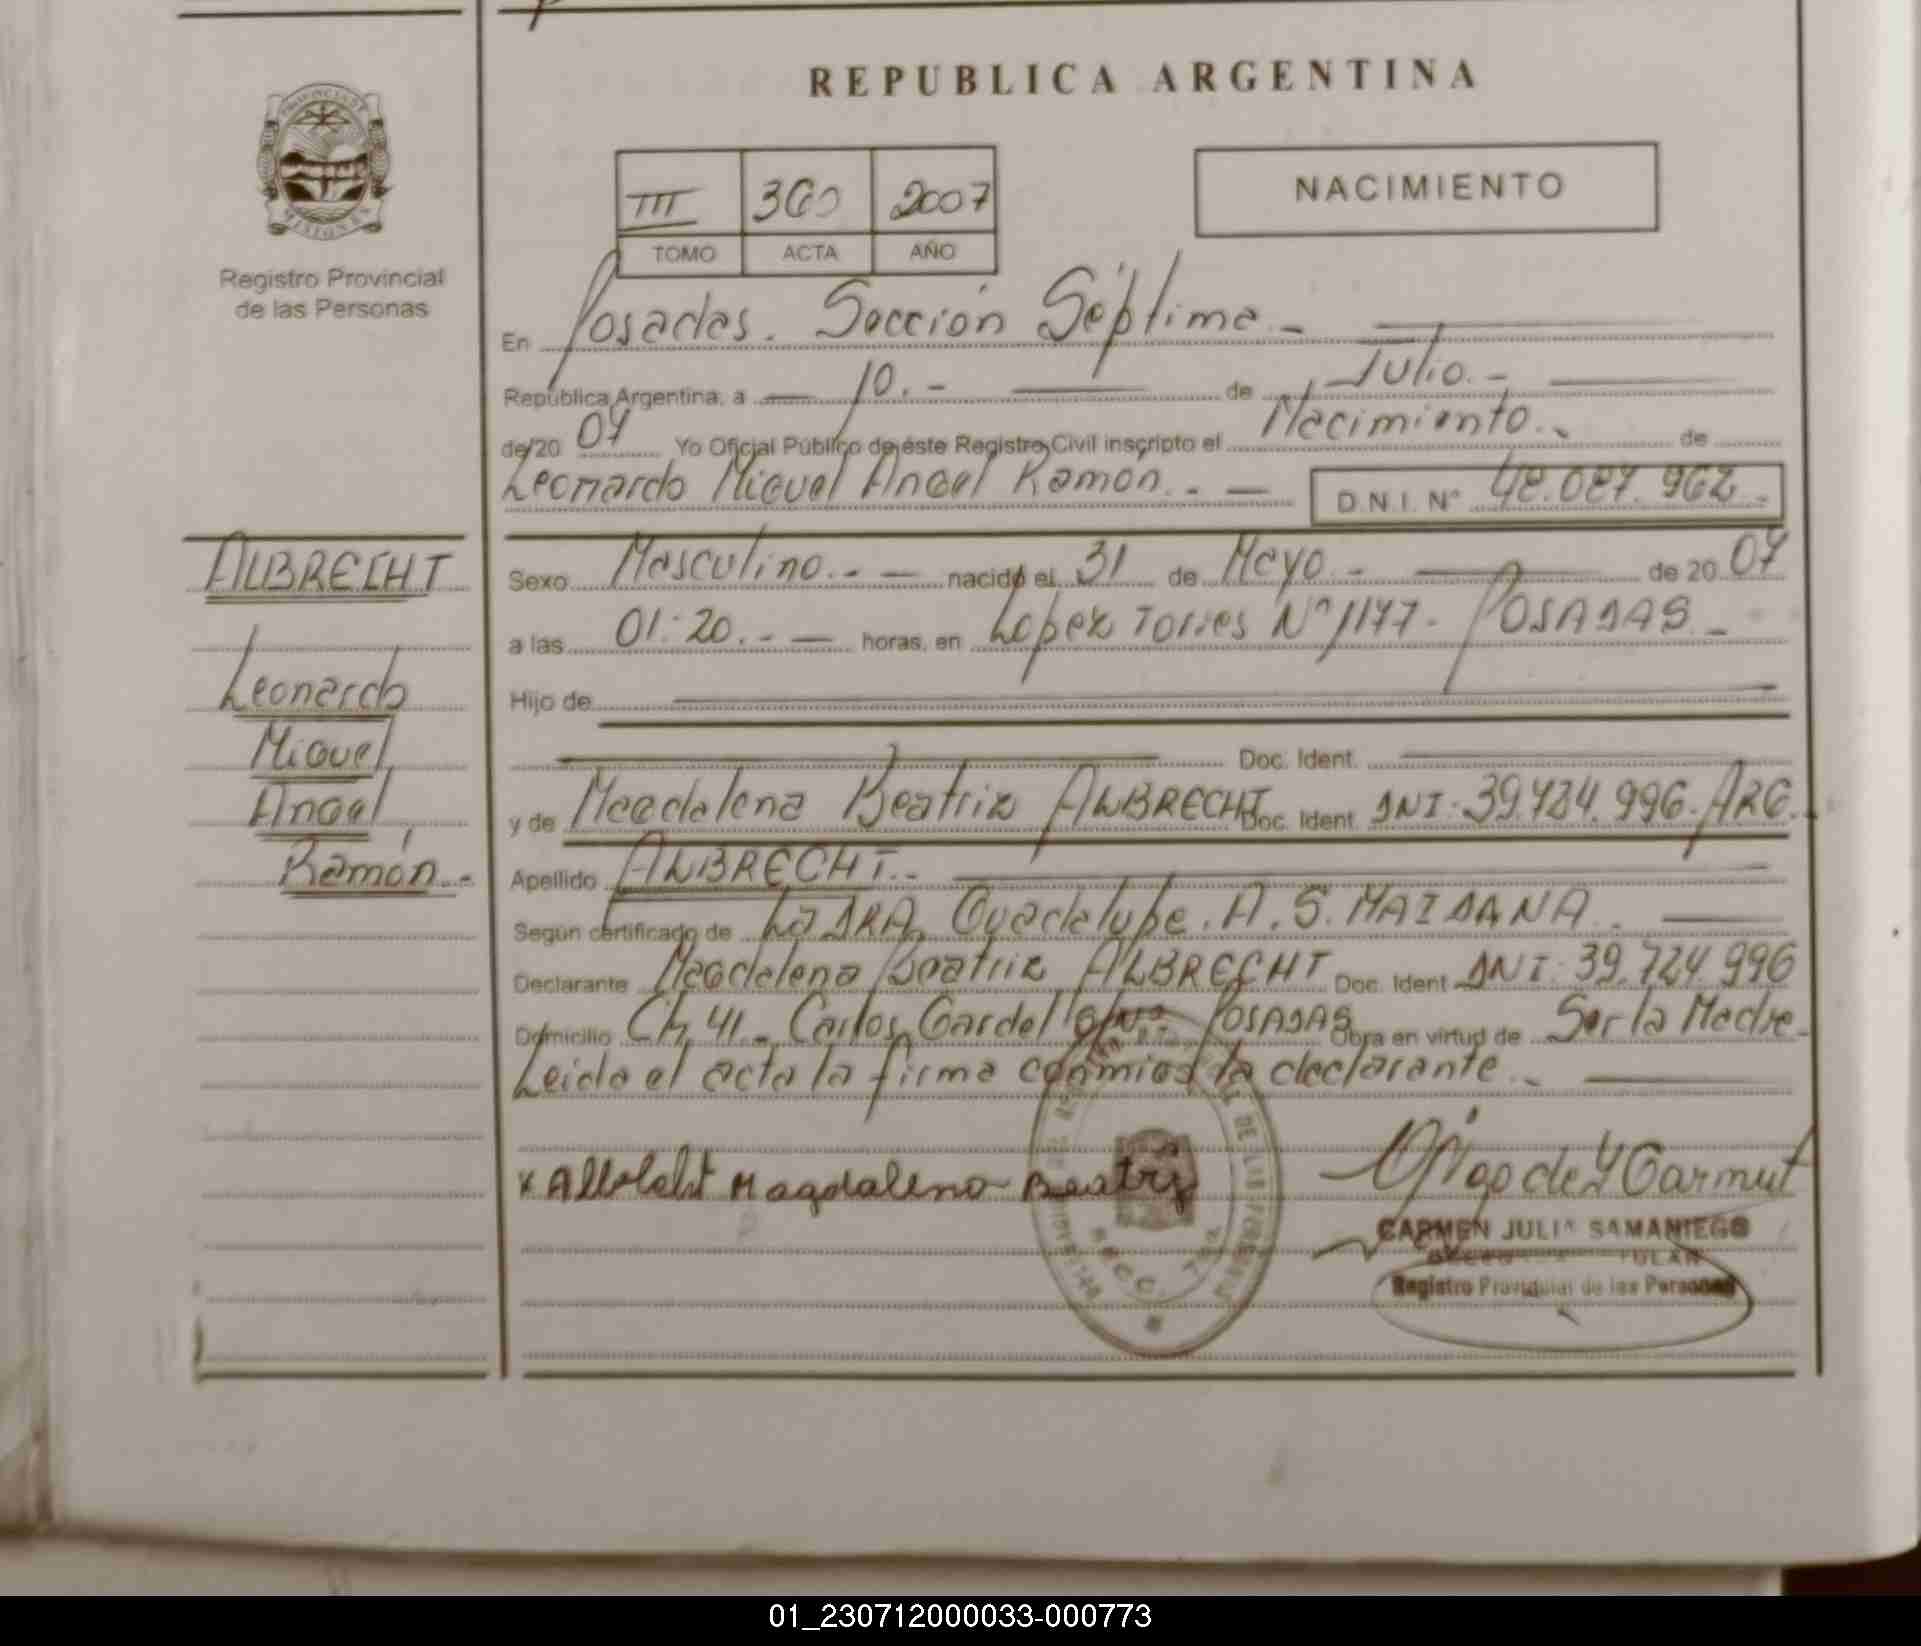 REPUBLICA ARGENTINA
NACIMIENTO
III 360 2007
TOMO ACTA AÑO
Registro Provincial
de las Personas
En Posadas. Sección Séptima.-
República Argentina, a 10.- de Julio.-
de 20 07 Yo Oficial Público de éste Registro Civil inscripto el Nacimiento.- de
Leonardo Miguel Angel Ramón.- D.N.I. Nº 48.087.962.-
ALBRECHT
Leonardo
Miguel
Angel
Ramón.-
Sexo Masculino.- nacido el 31 de Mayo.- de 20 07
a las 01:20.- horas, en Lopez Torres Nº 1177- POSADAS.-
Hijo de
Doc. Ident.
y de Magdalena Beatriz ALBRECHT Doc. Ident. DNI: 39.724.996. ARG.
Apellido ALBRECHT.-
Según certificado de La DRA. Guadalupe. A. S. MAIDANA.
Declarante Magdalena Beatriz ALBRECHT Doc. Ident DNI: 39.724.996
Domicilio Ch 41 - Carlos Gardel s/nº POSADAS Obra en virtud de Ser la Madre-
Leida el acta la firma conmigo la declarante.-
x Albrecht Magdalena Beatriz
CARMEN JULIA SAMANIEGO
Registro Provincial de las Personas
SECC. 7ma
01_230712000033-000773